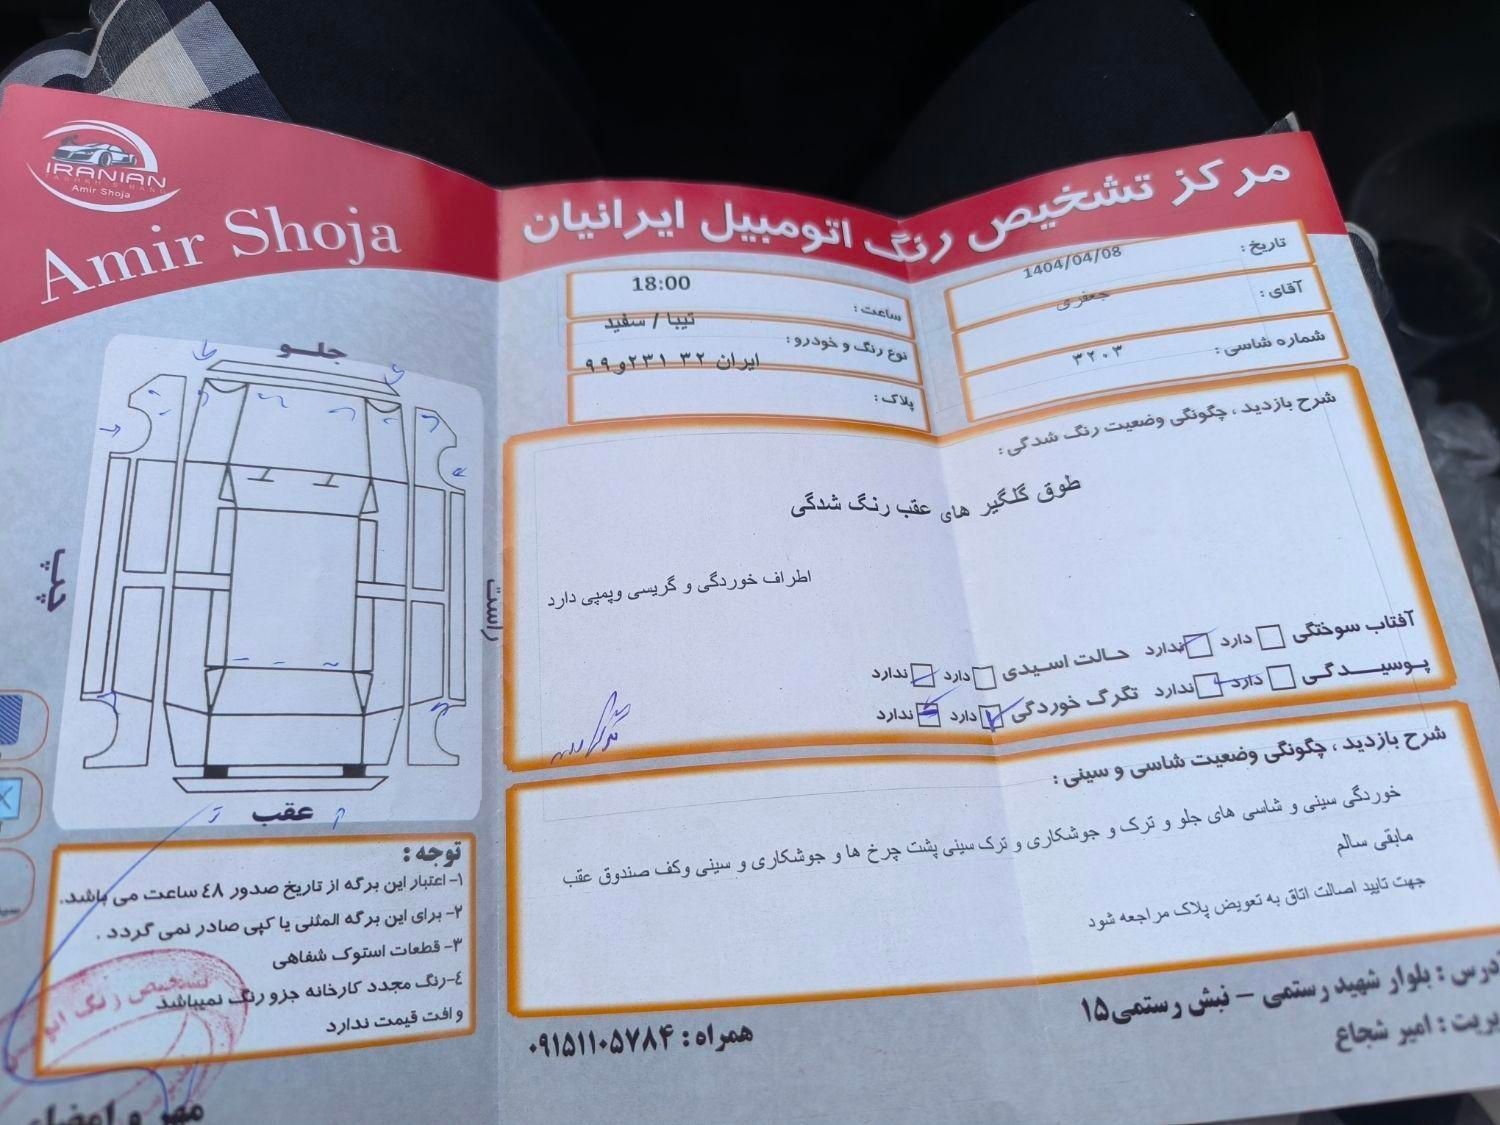 IRANIAN
TASHKHIS RANG
Amir Shoja
Amir Shoja
مرکز تشخیص رنگ اتومبیل ایرانیان
تاریخ : 1404/04/08
آقای : جعفری
شماره شاسی : ۳۲۰۳
ساعت : 18:00
نوع رنگ و خودرو : تیبا / سفید
پلاک : ایران ۳۲ ۲۳۱و۹۹
جلـو
چپ
راست
عقب
شرح بازدید ، چگونگی وضعیت رنگ شدگی :
طوق گلگیر های عقب رنگ شدگی
اطراف خوردگی و گریسی وپمپی دارد
آفتاب سوختگی دارد ندارد حـالت اسـیدی دارد ندارد
پـوسیـــدگـی دارد ندارد تگرگ خوردگی دارد ندارد
شرح بازدید ، چگونگی وضعیت شاسی و سینی :
خوردگی سینی و شاسی های جلو و ترک و جوشکاری و ترک سینی پشت چرخ ها و جوشکاری و سینی وکف صندوق عقب
مابقی سالم
جهت تایید اصالت اتاق به تعویض پلاک مراجعه شود
توجه :
۱- اعتبار این برگه از تاریخ صدور ٤٨ ساعت می باشد.
۲- برای این برگه المثنی یا کپی صادر نمی گردد .
۳- قطعات استوک شفاهی
٤-رنگ مجدد کارخانه جزو رنگ نمیباشد
و افت قیمت ندارد
تشخیص رنگ
مهر و امضاء
همراه : ۰۹۱۵۱۱۰۵۷۸۴
درس : بلوار شهید رستمی – نبش رستمی۱۵
یریت : امیر شجاع